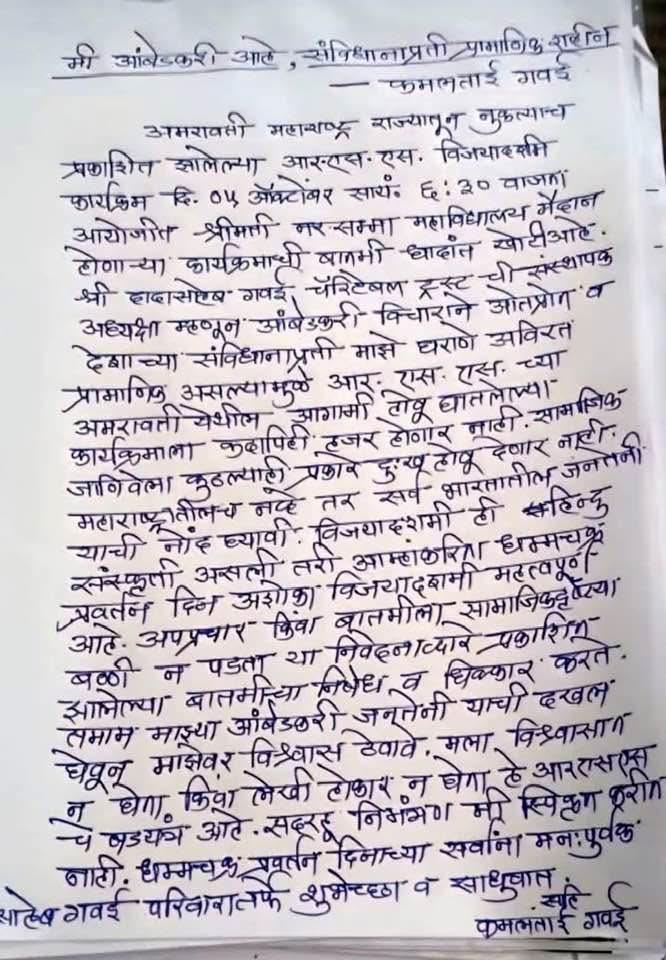 मी आंबेडकरी आहे, संविधानाप्रती प्रामाणिक राहीन
— कमलताई गवई
अमरावती महाराष्ट्र राज्यातून नुकत्याच
प्रकाशित झालेल्या आर.एस.एस. विजयादशमी
कार्यक्रम दि. ०५ ऑक्टोबर सायं. ६:३० वाजता
आयोजीत श्रीमती नरसम्मा महाविद्यालय मैदान
होणाऱ्या कार्यक्रमाची बातमी धादांत खोटी आहे.
श्री दादासाहेब गवई चॅरिटेबल ट्रस्ट ची संस्थापक
अध्यक्षा म्हणून आंबेडकरी विचाराने ओतप्रोत व
देशाच्या संविधानाप्रती माझे घराणे अविरत
प्रामाणिक असल्यामुळे आर. एस. एस. च्या
अमरावती येथील आगामी होवू घातलेल्या
कार्यक्रमाला कदापिही हजर होणार नाही. सामाजिक
जाणिवेला कुठल्याही प्रकारे दुःख होवू देणार नाही.
महाराष्ट्रातीलच नव्हे तर सर्व भारतातील जनतेनी
याची नोंद घ्यावी. विजयादशमी ही हिन्दु
संस्कृती असली तरी आम्हांकरिता धम्मचक्र
प्रवर्तन दिन अशोका विजयादशमी महत्वपूर्ण
आहे. अपप्रचार किंवा बातमीला सामाजिक
बळी न पडता या निवेदनाव्दारे प्रकाशित
झालेल्या बातमीचा निषेध व धिक्कार करते.
तमाम माझ्या आंबेडकरी जनतेनी याची दखल
घेवून माझेवर विश्वास ठेवावे. मला विश्वासात
न घेता किंवा लेखी होकार न घेता हे आरएसएस
चे षडयंत्र आहे. सदरहू निमंत्रण मी स्विकृत करीत
नाही. धम्मचक्र प्रवर्तन दिनाच्या सर्वांना मनःपुर्वक
साहेब गवई परिवारातर्फे शुभेच्छा व साधुवाद.
कमलताई गवई